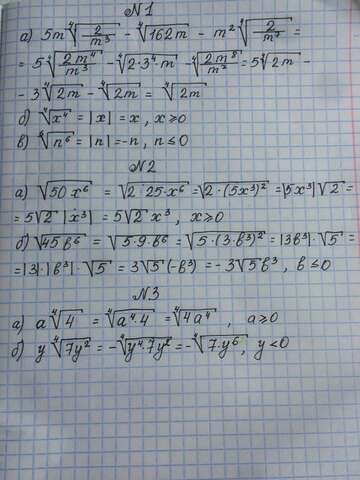 №1
а) 5m ⁴√(2/m³) − ⁴√(162m) − m² ⁴√(2/m⁷) =
= 5 ⁴√(2m⁴/m³) − ⁴√(2·3⁴m) − ⁴√(2m⁸/m⁷) = 5 ⁴√(2m) −
− 3 ⁴√(2m) − ⁴√(2m) = ⁴√(2m)
б) ⁴√(x⁴) = |x| = x, x ⩾ 0
в) ⁶√(n⁶) = |n| = −n, n ≤ 0
№2
а) √(50x⁶) = √(2·25·x⁶) = √(2·(5x³)²) = |5x³|√2 =
= 5√2 |x³| = 5√2 x³, x ⩾ 0
б) √(45b⁶) = √(5·9·b⁶) = √(5·(3·b³)²) = |3b³|·√5 =
= |3|·|b³|·√5 = 3√5(−b³) = −3√5b³, b ≤ 0
№3
а) a ⁴√4 = ⁴√(a⁴·4) = ⁴√(4a⁴), a ⩾ 0
б) y ⁴√(7y²) = −⁴√(y⁴·7y²) = −⁴√(7·y⁶), y < 0